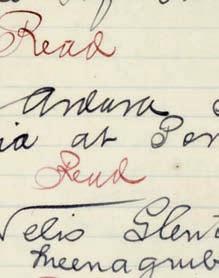 Read
Ardara
ia at Por
Read
Velis Glen
Meenagrub